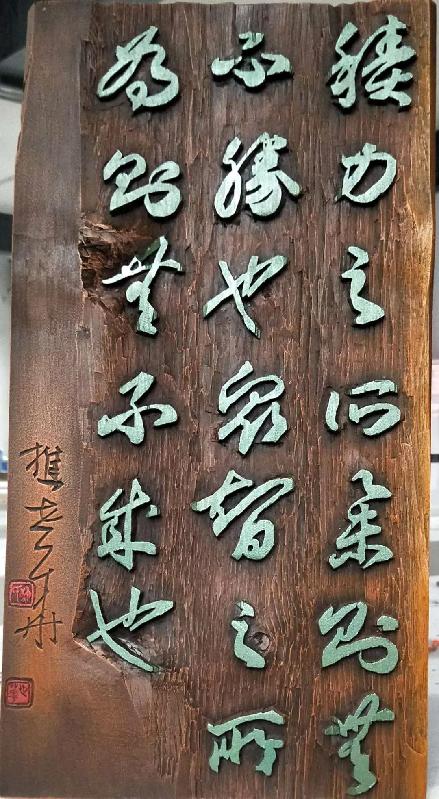 積力之所舉則無
不勝也眾智之所
為則無不成也